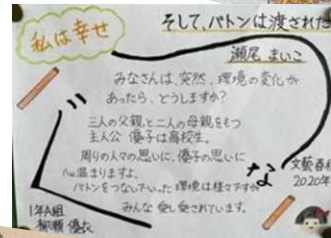 そして、バトンは渡された
私は幸せ
瀬尾 まいこ
みなさんは、突然、環境の変化が
あったら、どうしますか？
三人の父親と二人の母親をもつ
主人公 優子は高校生。
周りの人々の思いに、優子の思いに
心温まりますよ。
バトンをつないでいった環境は様々ですが
みんな愛し愛されています。
な
文藝春秋
2020年
1年A組